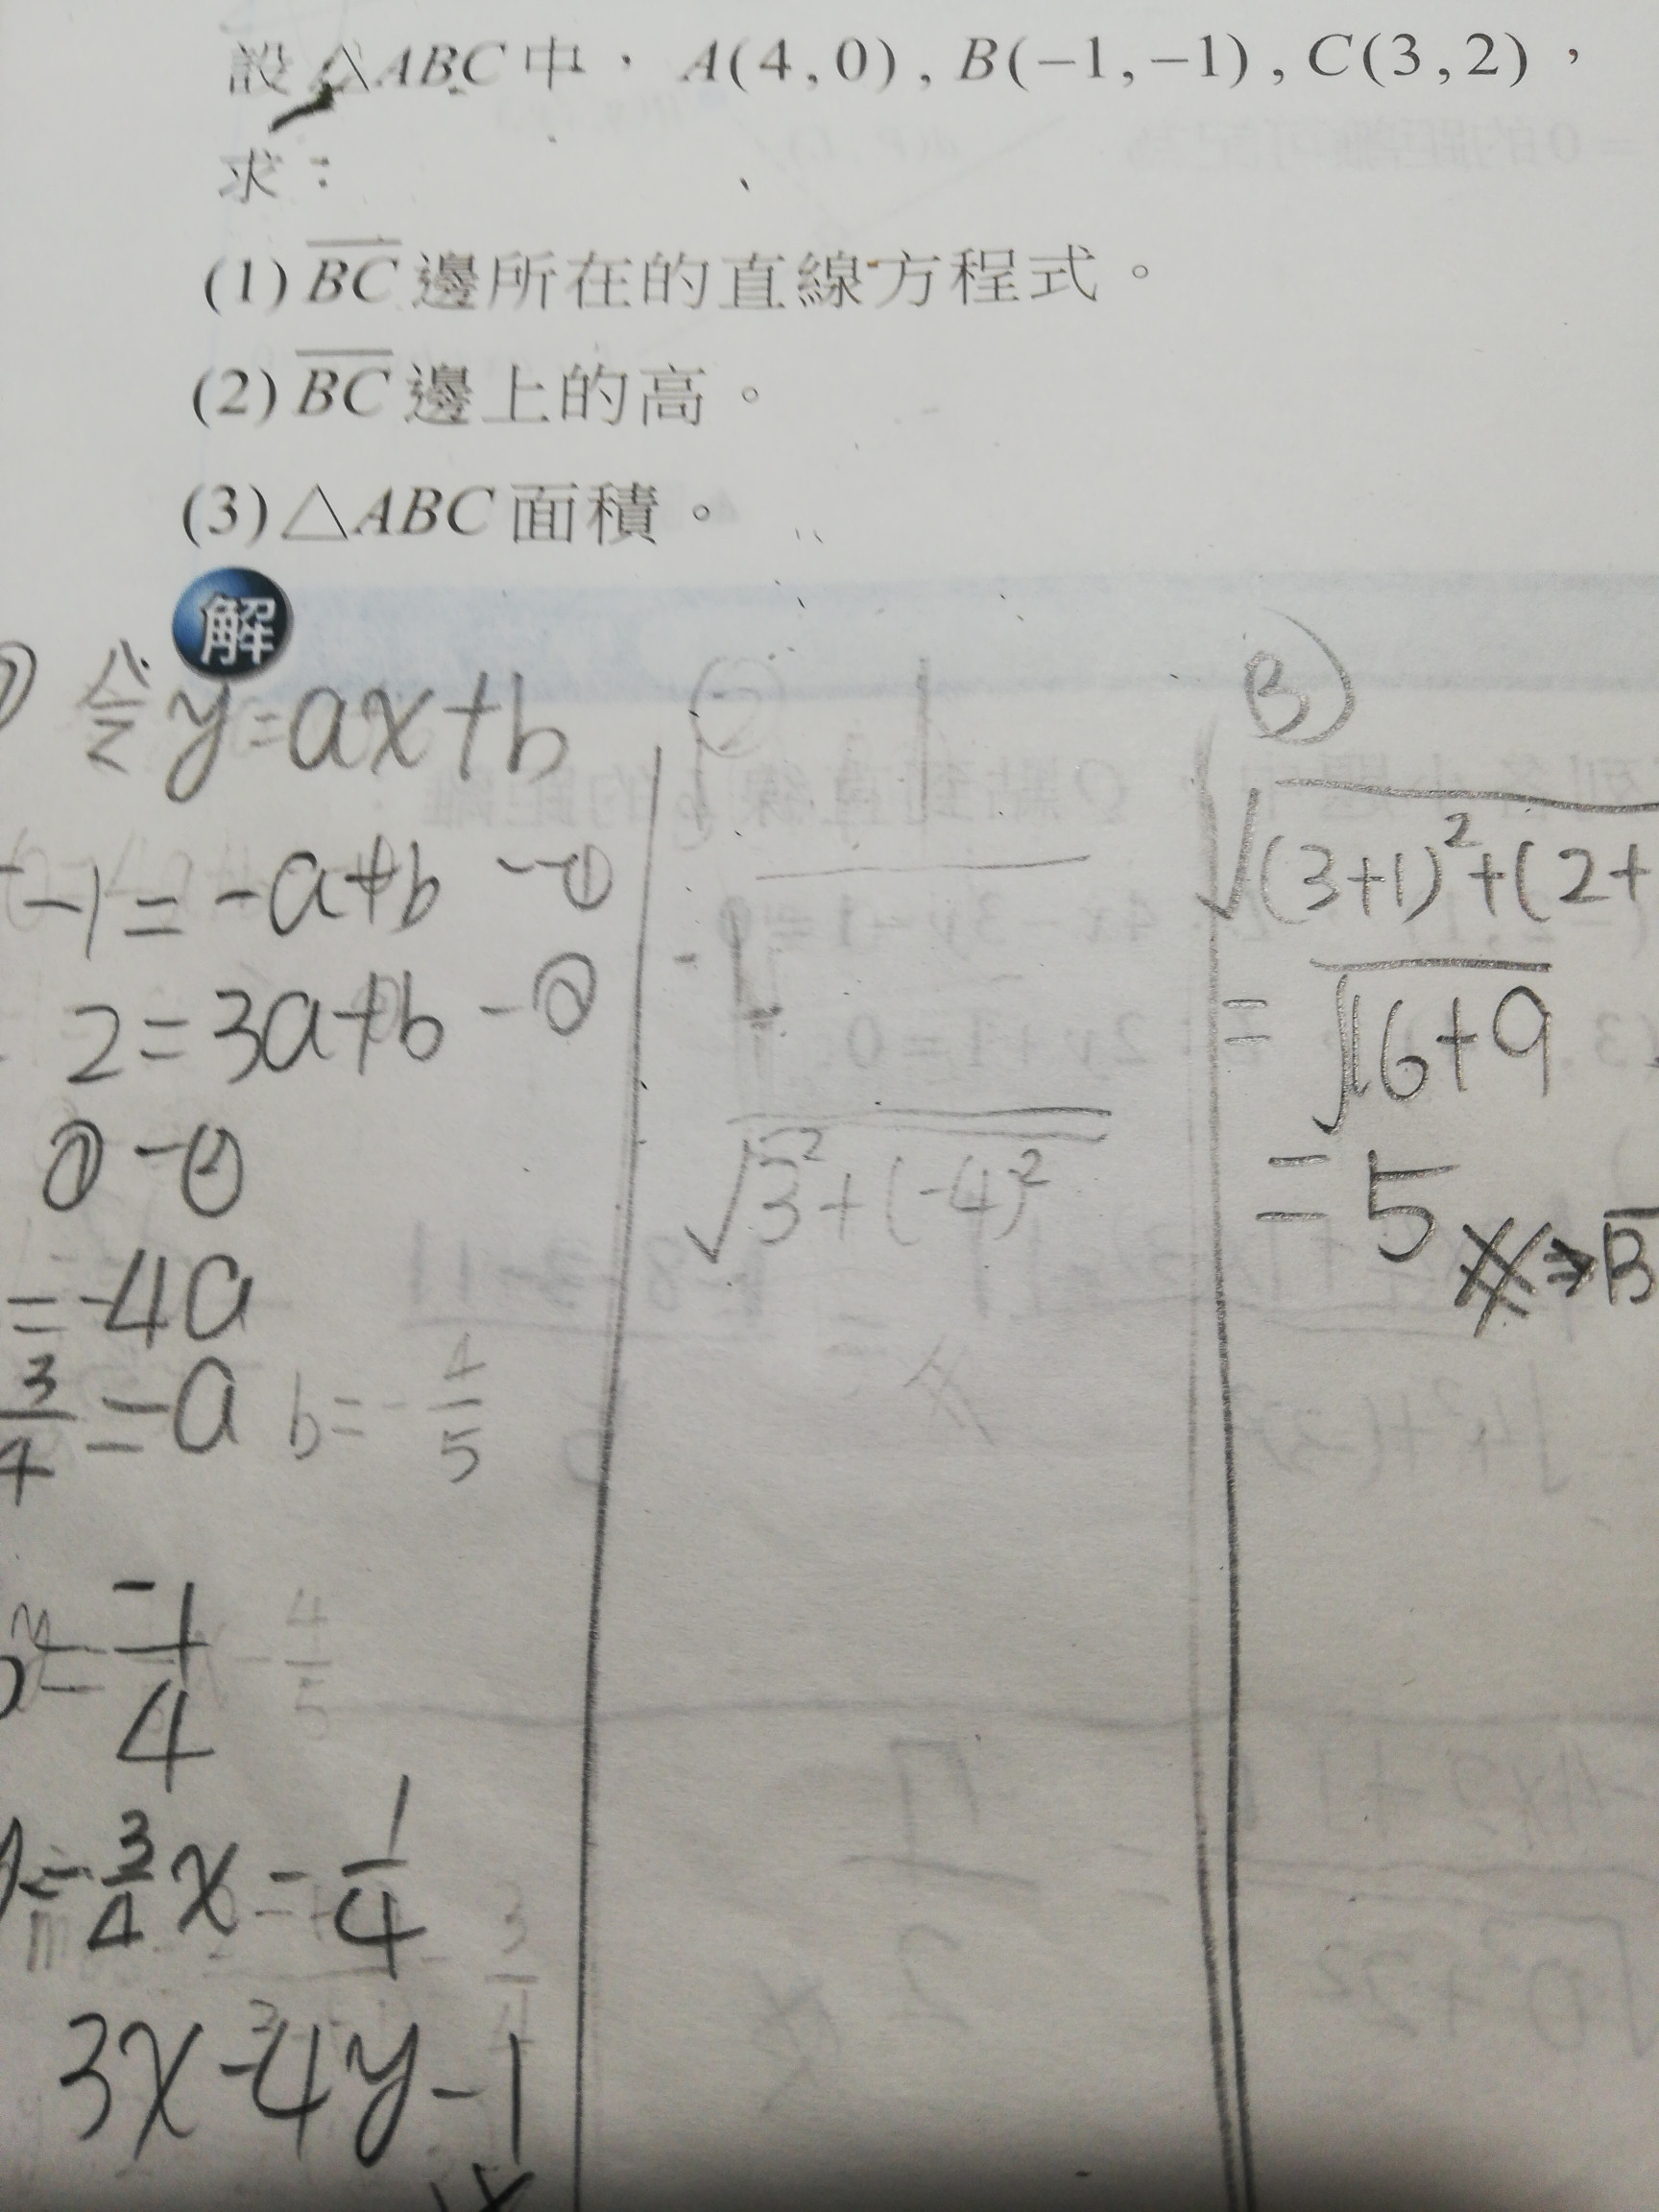 設△ABC中，A(4,0),B(−1,−1),C(3,2)，
求：
(1) BC 邊所在的直線方程式。
(2) BC 邊上的高。
(3) △ABC 面積。
解
y=ax+b
-1=-a+b -①
2=3a+b -②
①-②
=-4a
3/4=a b=-4/5
=-1/4
=3/4x-1/4
3x-4y-1
②
√3²+(-4)²
3)
√(3+1)²+(2+
=√16+9
=5 ⇒B